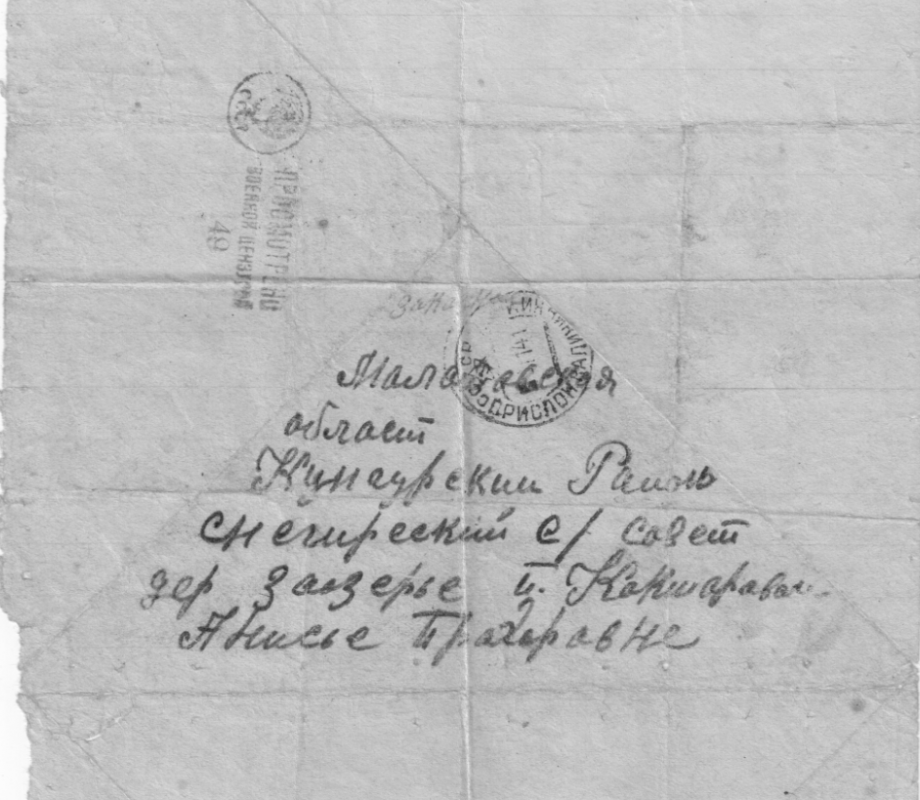 СССР
ПРОСМОТРЕНО
ВОЕННОЙ ЦЕНЗУРОЙ
49
Молотовская
област
Кунгурский Район
снегиреский с/ совет
дер заозерье п. Кокшаравой
Абнисье Прохоровне